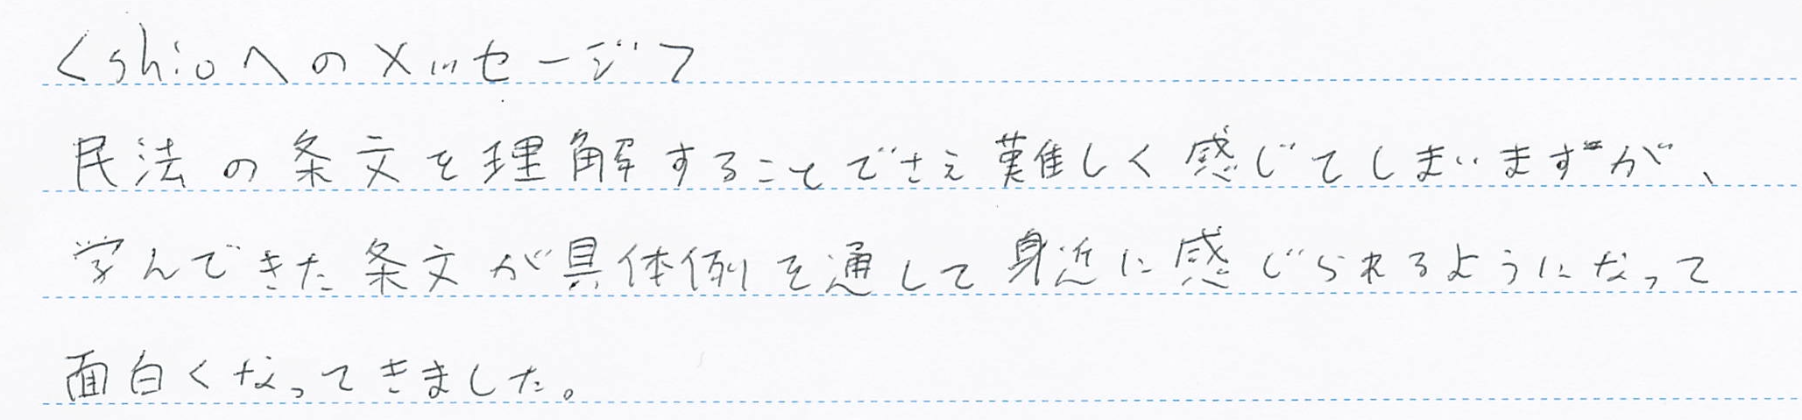 <shioへのメッセージ>
民法の条文を理解することでさえ難しく感じてしまいますが、
学んできた条文が具体例を通して身近に感じられるようになって
面白くなってきました。